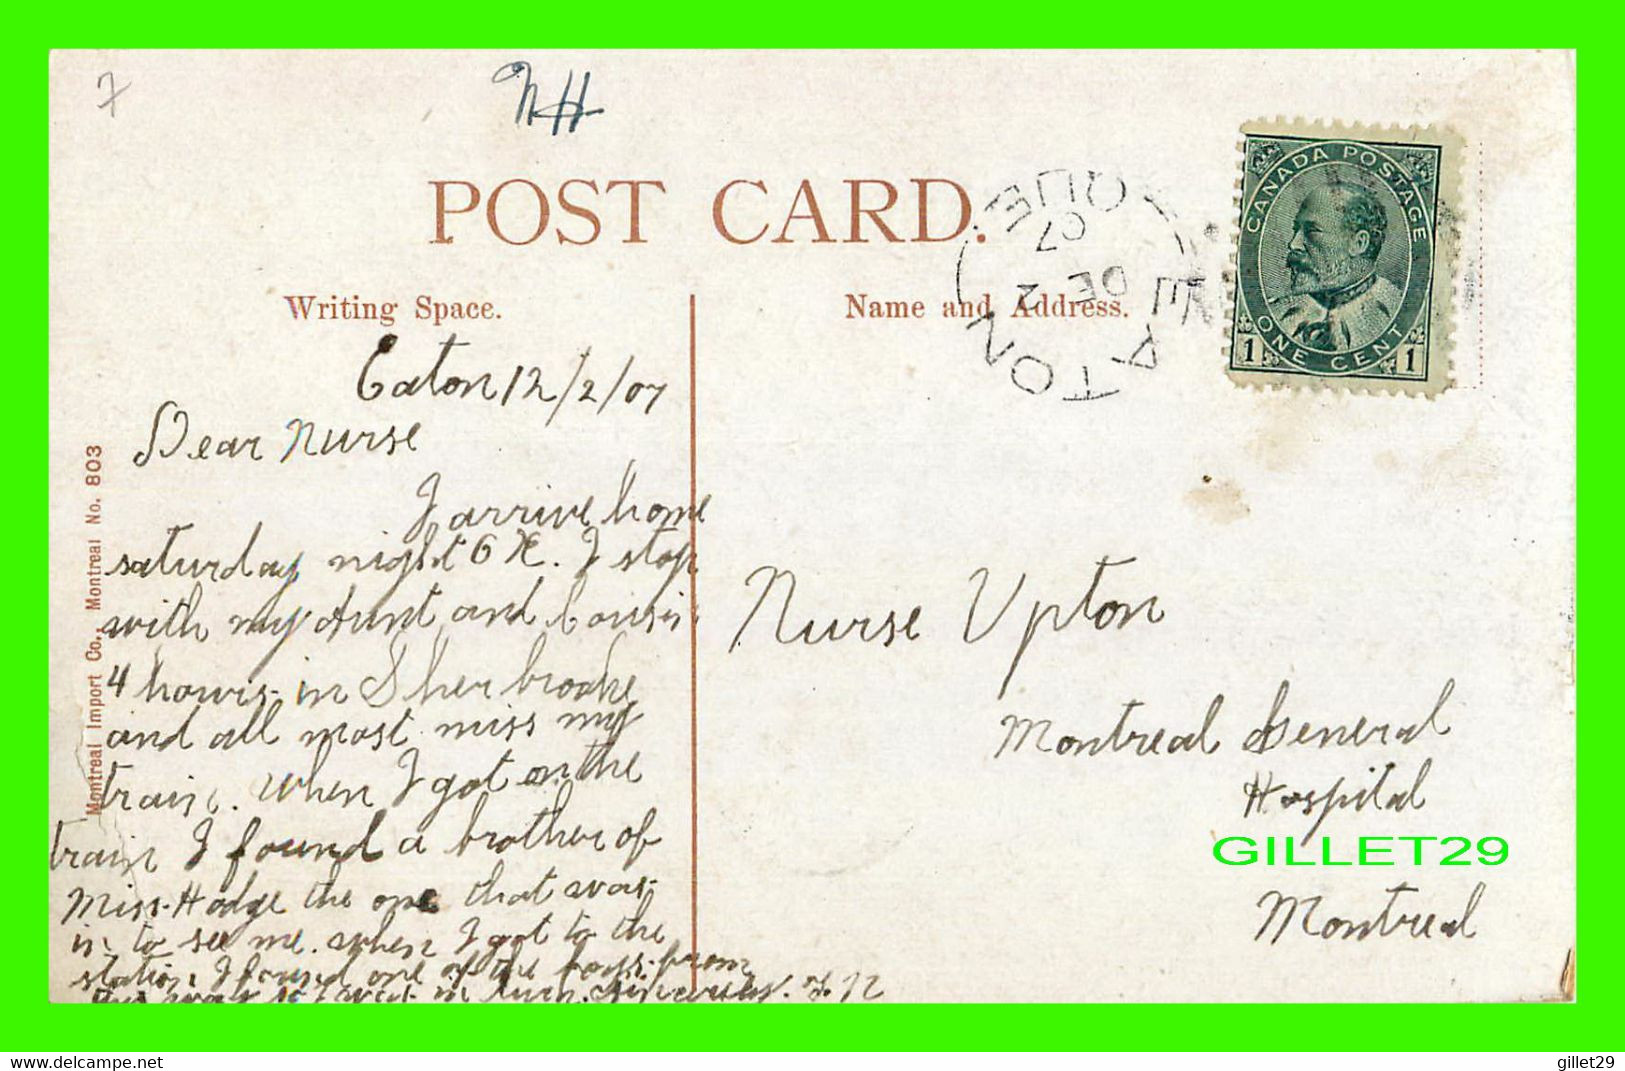 7
NH
POST CARD.
CANADA POSTAGE
ONE CENT
1 1
EATON
QUE
DE 2
07
Writing Space.
Name and Address.
Eaton 12/2/07
Dear Nurse
I arrive home
saturday night 6 . I stop
with my Aunt and Cousin
4 hours in Sherbrooke
and all most miss my
train. when I got on the
train I found a brother of
Miss Hodge the one that was
in to see me. when I got to the
station I found one of the boys from
Nurse Upton
Montreal General
Hospital
Montreal
Montreal Import Co., Montreal No. 803
GILLET29
https://www.delcampe.net
gillet29